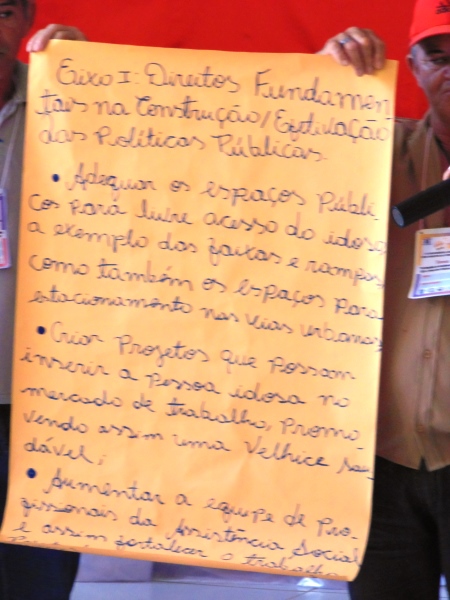 Eixo I: Direitos Fundamen
tais na Construção/Efetivação
das Políticas Públicas.
• Adequar os espaços Públi
cos para livre acesso do idoso,
a exemplo das faixas e rampas,
como também os espaços para
estacionamento nas vias urbanas,
• Criar Projetos que possam
inserir a pessoa idosa no
mercado de trabalho, promo
vendo assim uma Velhice sau
dável;
• Aumentar a equipe de pro
fissionais da Assistência Social
e assim fortalecer o trabalho